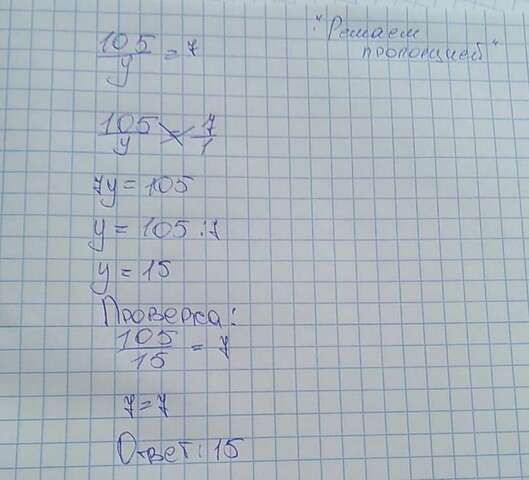 "Решаем
пропорцией"
105/y = 7
105/y = 7/1
7y = 105
y = 105 : 7
y = 15
Проверка:
105/15 = 7
7 = 7
Ответ: 15